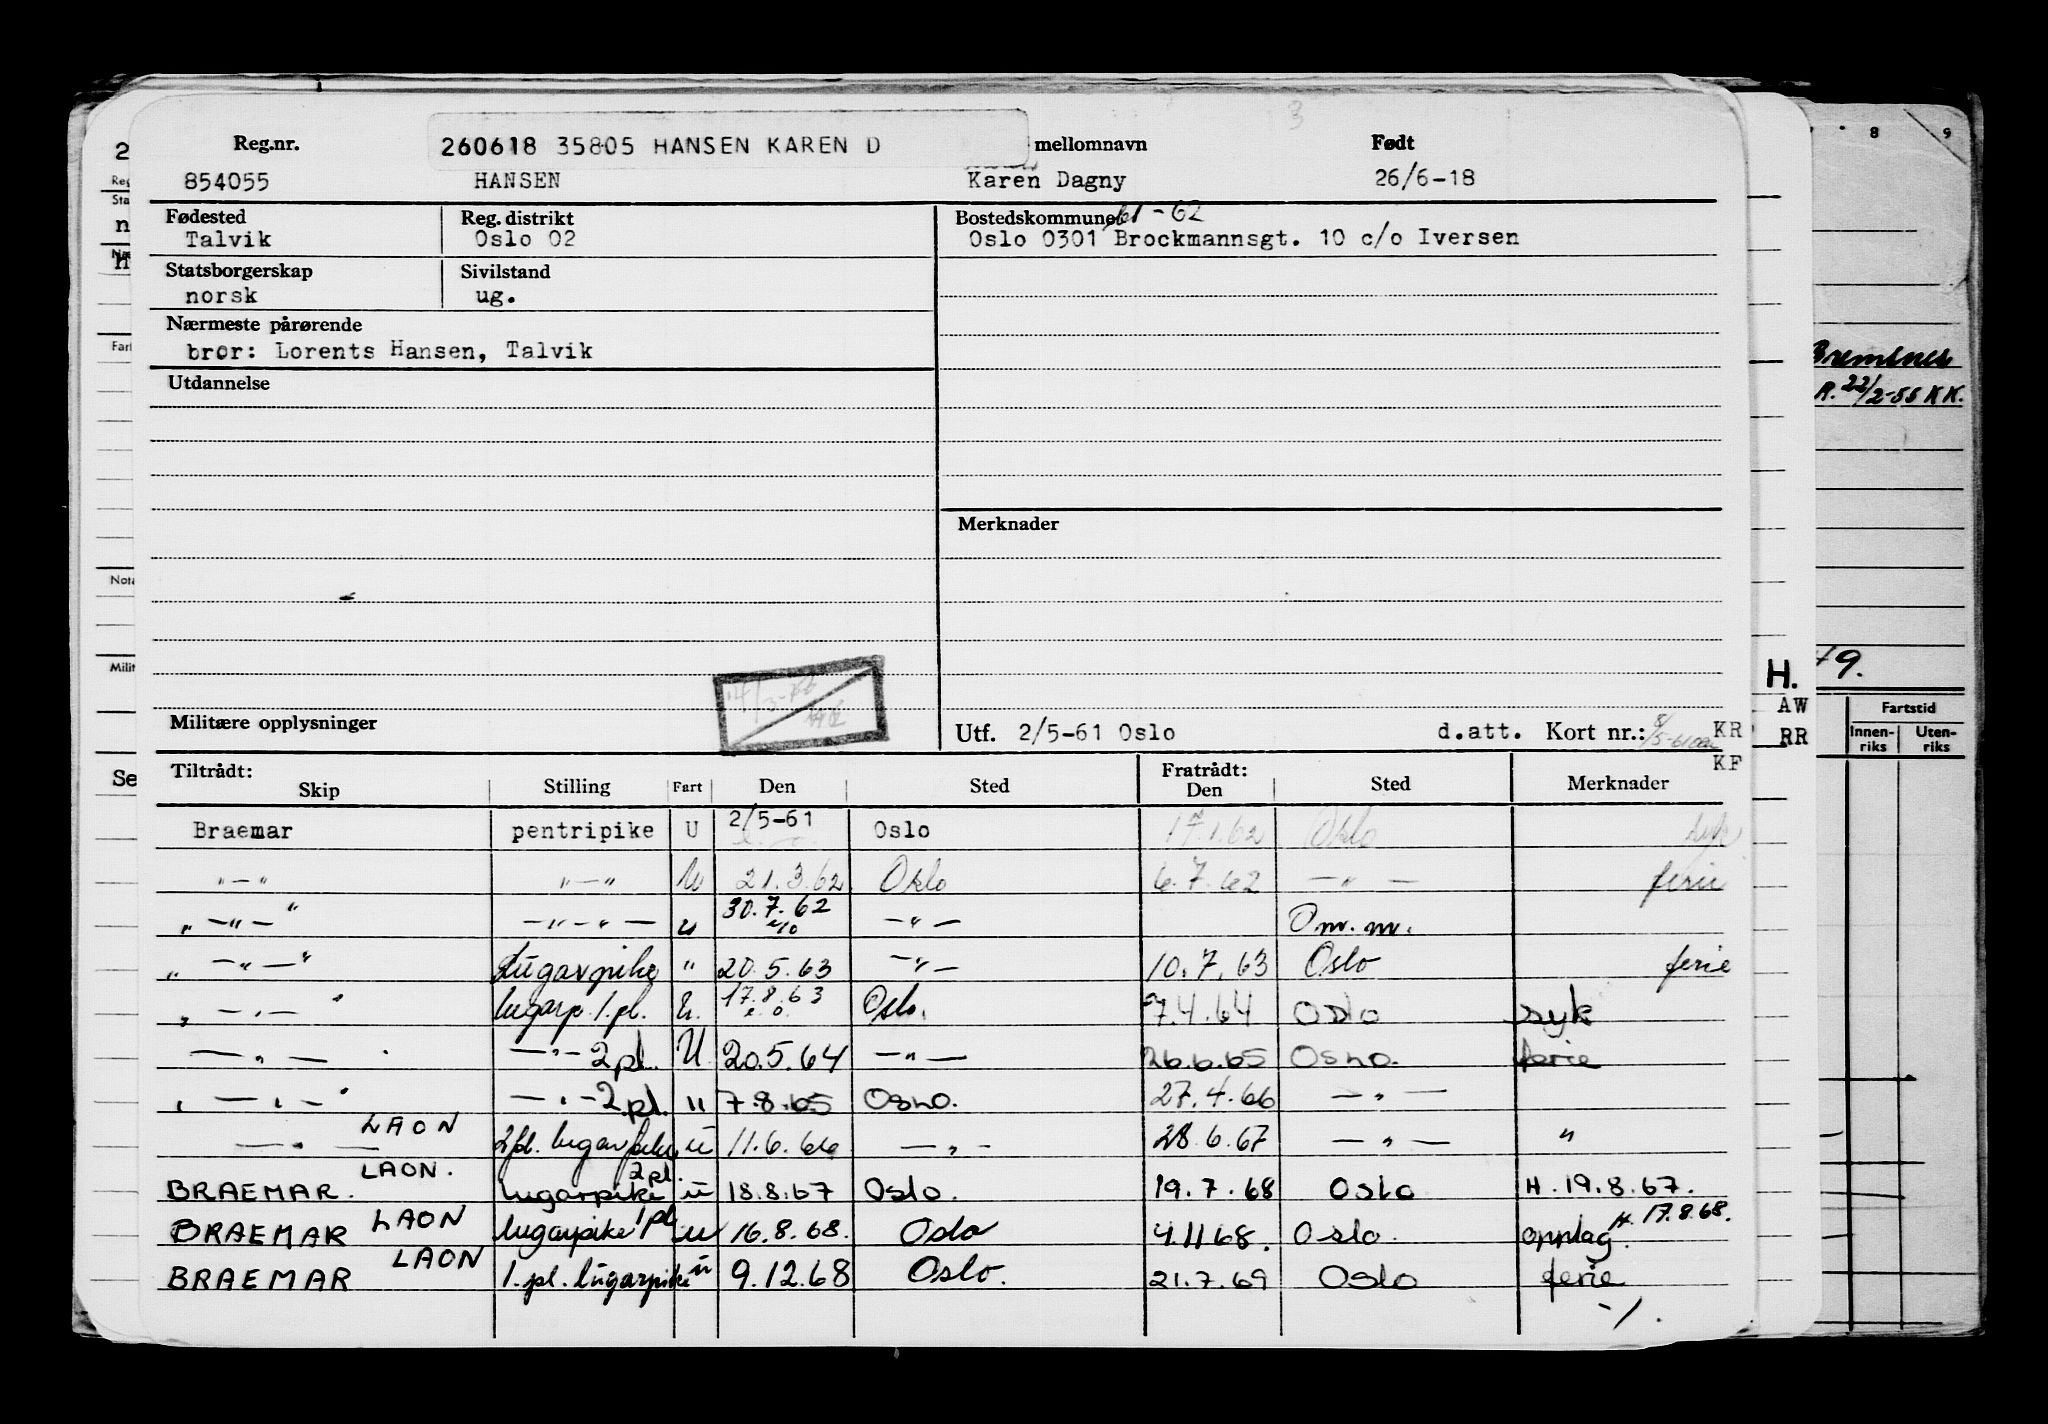 Reg.nr. 260618 35805 HANSEN KAREN D mellomnavn Født
854055 HANSEN Karen Dagny 26/6-18
Fødested Reg. distrikt Bostedskommune 61-62
Talvik Oslo 02 Oslo 0301 Brockmannsgt. 10 c/o Iversen
Statsborgerskap Sivilstand
norsk ug.
Nærmeste pårørende
bror: Lorents Hansen, Talvik
Utdannelse
Merknader
Militære opplysninger
Utf. 2/5-61 Oslo d.att. Kort nr.: KR
KF
H.
AW
RR
Bremsnes
R. 22/2-55 KK.
49.
8 9
Fartstid
Innen-riks Uten-riks
Tiltrådt: Fratrådt:
Skip Stilling Fart Den Sted Den Sted Merknader
Braemar pentripike U 2/5-61 Oslo 17.1.62 Oslo syk
"-" "-" U 21.3.62 Oslo 6.7.62 -"- ferie
"-"-" -"-"- u 30.7.62 -"- Om. m.
"-"-" Lugarpike " 20.5.63 -"- 10.7.63 Oslo ferie
"-"-" lugarp. 1.pl. U. 17.8.63 Oslo. 7.4.64 Oslo syk
-"- -"- 2pl. U 20.5.64 -"- 26.6.65 Oslo. ferie
"-"-" -"- 2.pl. " 7.8.65 Oslo. 27.4.66 -"-
-"- LAON 2pl. lugarpike u 11.6.66 -"- 28.6.67 -"- "
BRAEMAR. LAON. lugarpike 2pl. u 18.8.67 Oslo. 19.7.68 Oslo H. 19.8.67.
BRAEMAR LAON lugarpike 1pl u 16.8.68. Oslo 4.11.68. Oslo. opplag. H. 17.8.68.
BRAEMAR LAON 1.pl. lugarpike u 9.12.68 Oslo. 21.7.69 Oslo ferie
-/.